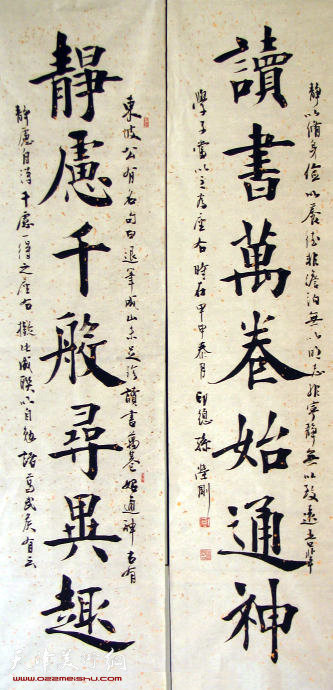 讀書萬卷始通神
靜慮千般尋異趣
東坡公有名句曰退筆成山未足珍讀書萬卷始通神古有
靜慮自得千慮一得之座右擬此成聯以自勉諸葛武侯有云
靜以修身儉以養德非澹泊無以明志非寧靜無以致遠吾輩
學子當以之為座右時在甲申春月印德孫瑩剛
天津美術網
www.022meishu.com